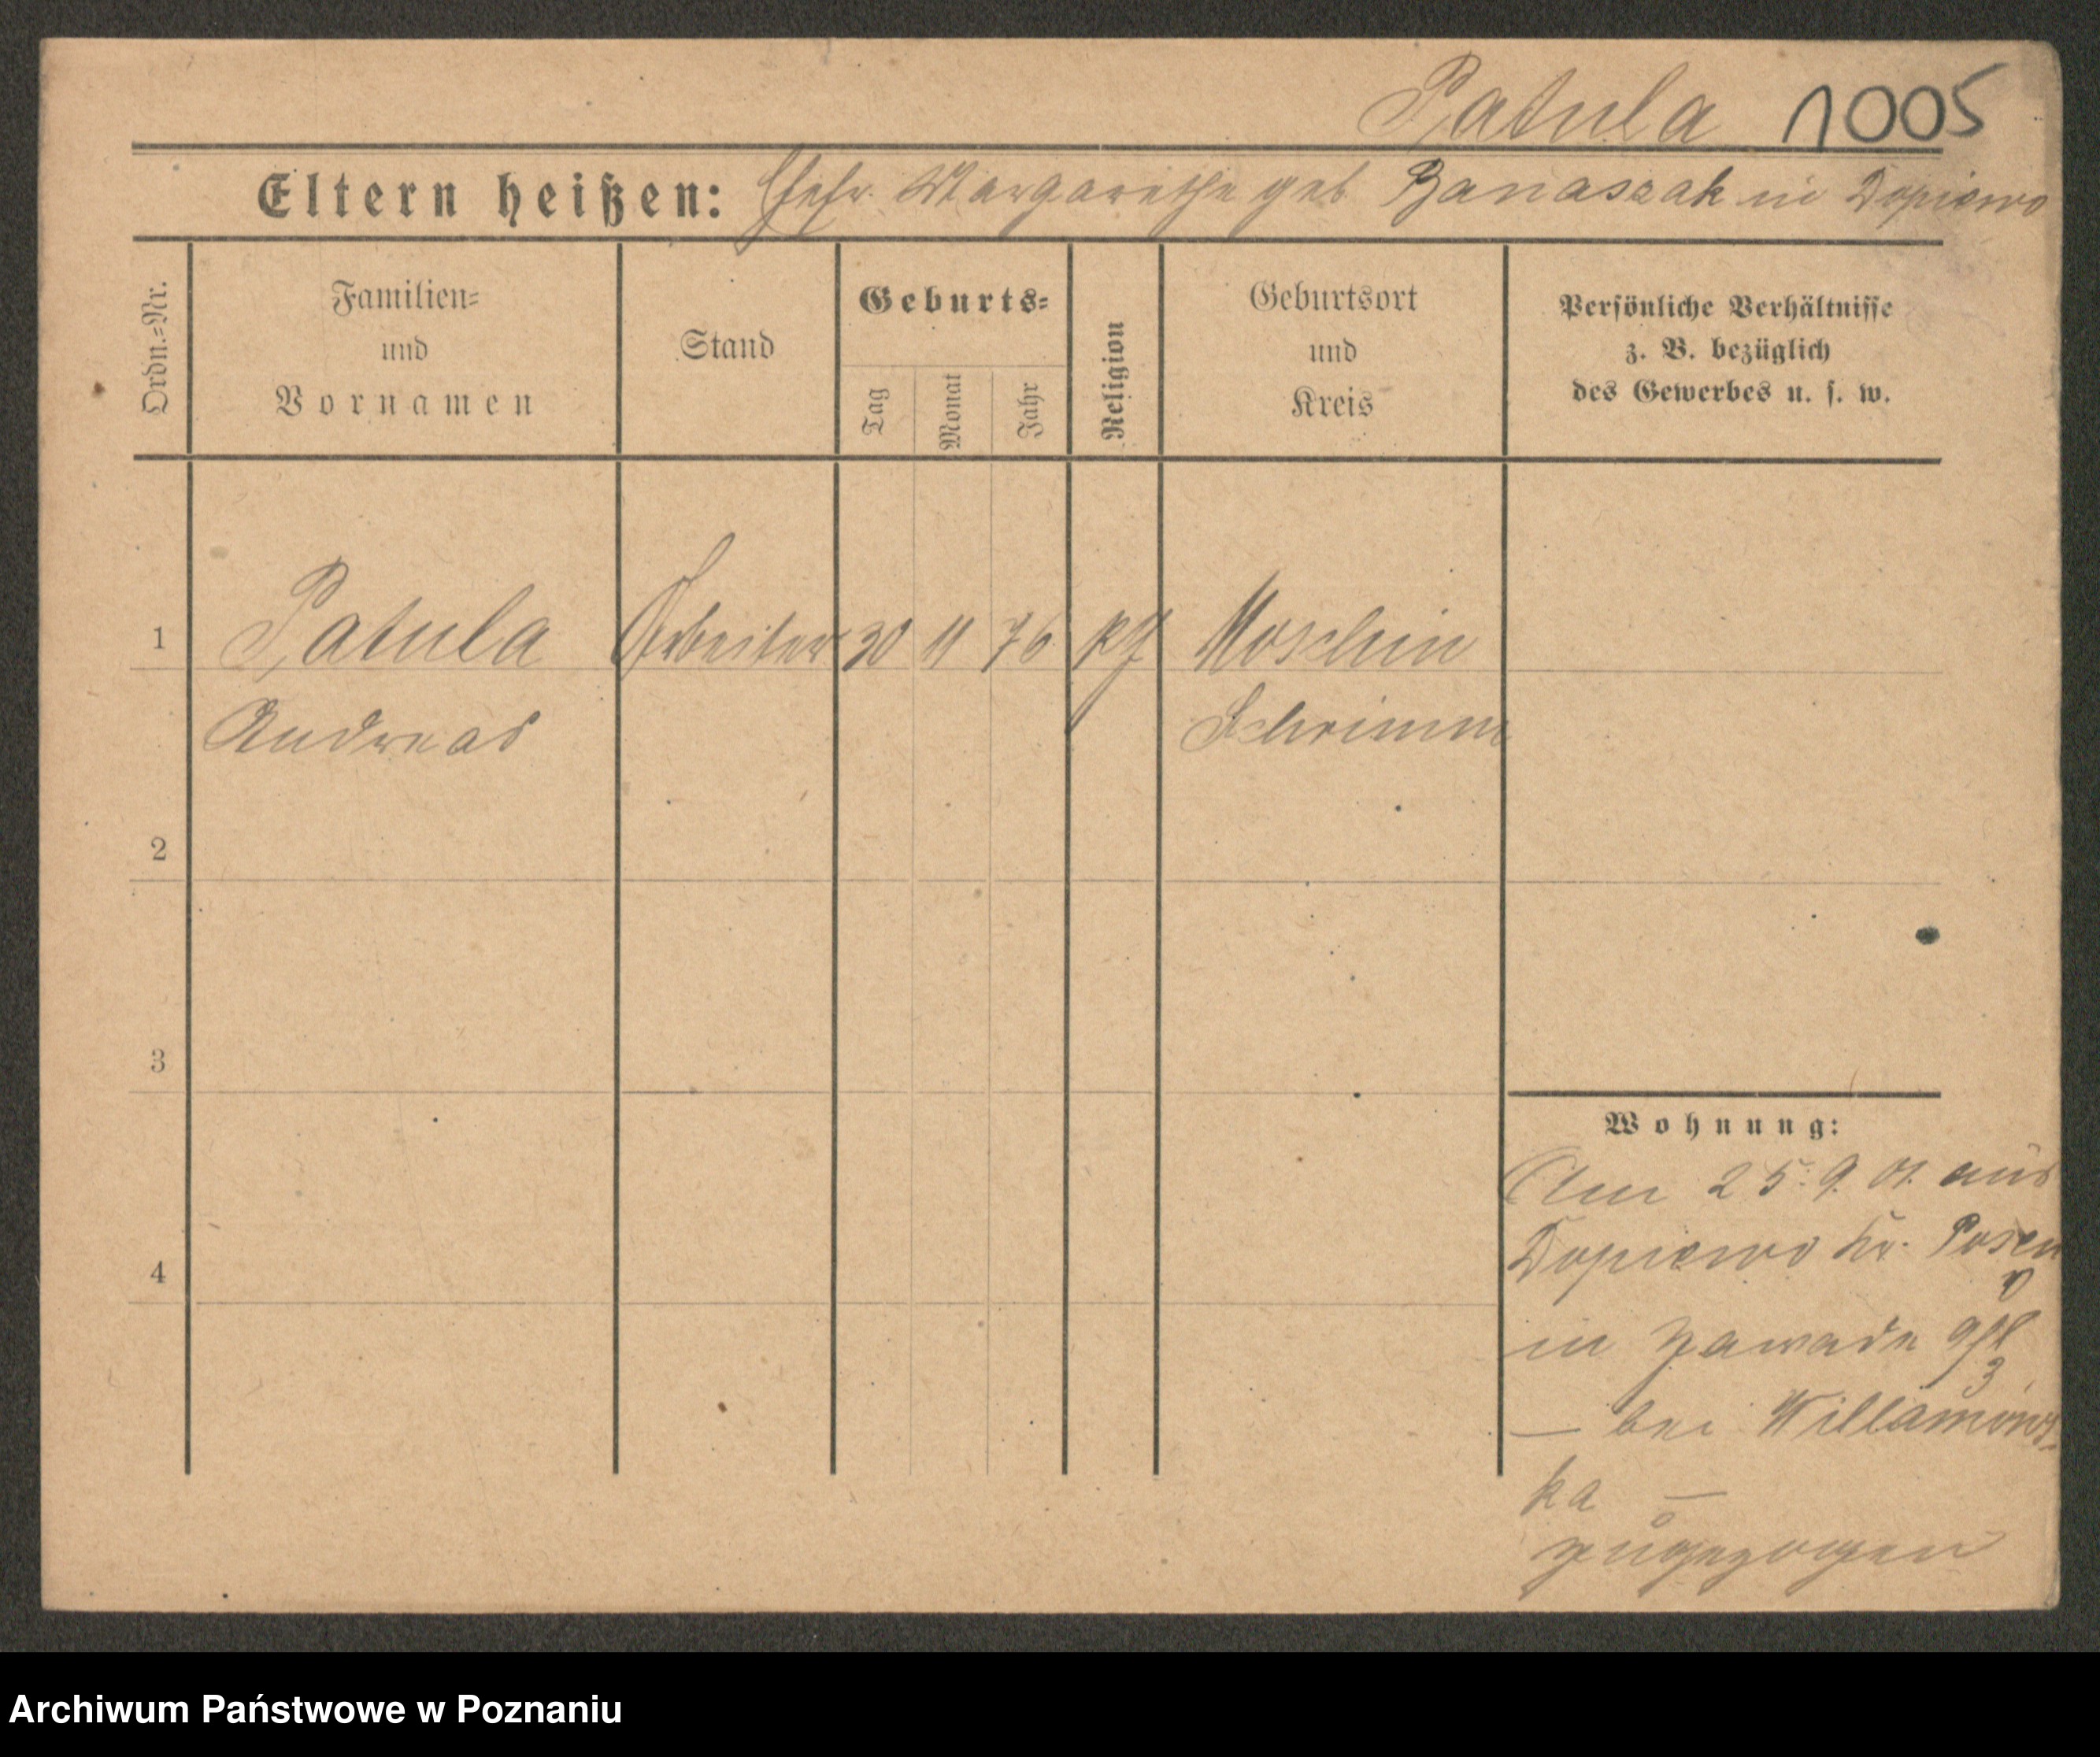 Patula 1005
Eltern heißen: Ehefr. Margarethe geb. Banaszak in Dopiewo
Ordn.=Nr.
Familien=
und
Vornamen
Stand
Geburts=
Tag
Monat
Jahr
Religion
Geburtsort
und
Kreis
Persönliche Verhältnisse
z. B. bezüglich
des Gewerbes u. s. w.
1 Patula Arbeiter 30 11 76 Moschin
Andreas Schrimm
2
3
4
Wohnung:
Am 25. 9. 01. aus
Dopiewo Kr. Posen
in Zawade
— bei Willamows-
ka —
zugezogen
Archiwum Państwowe w Poznaniu